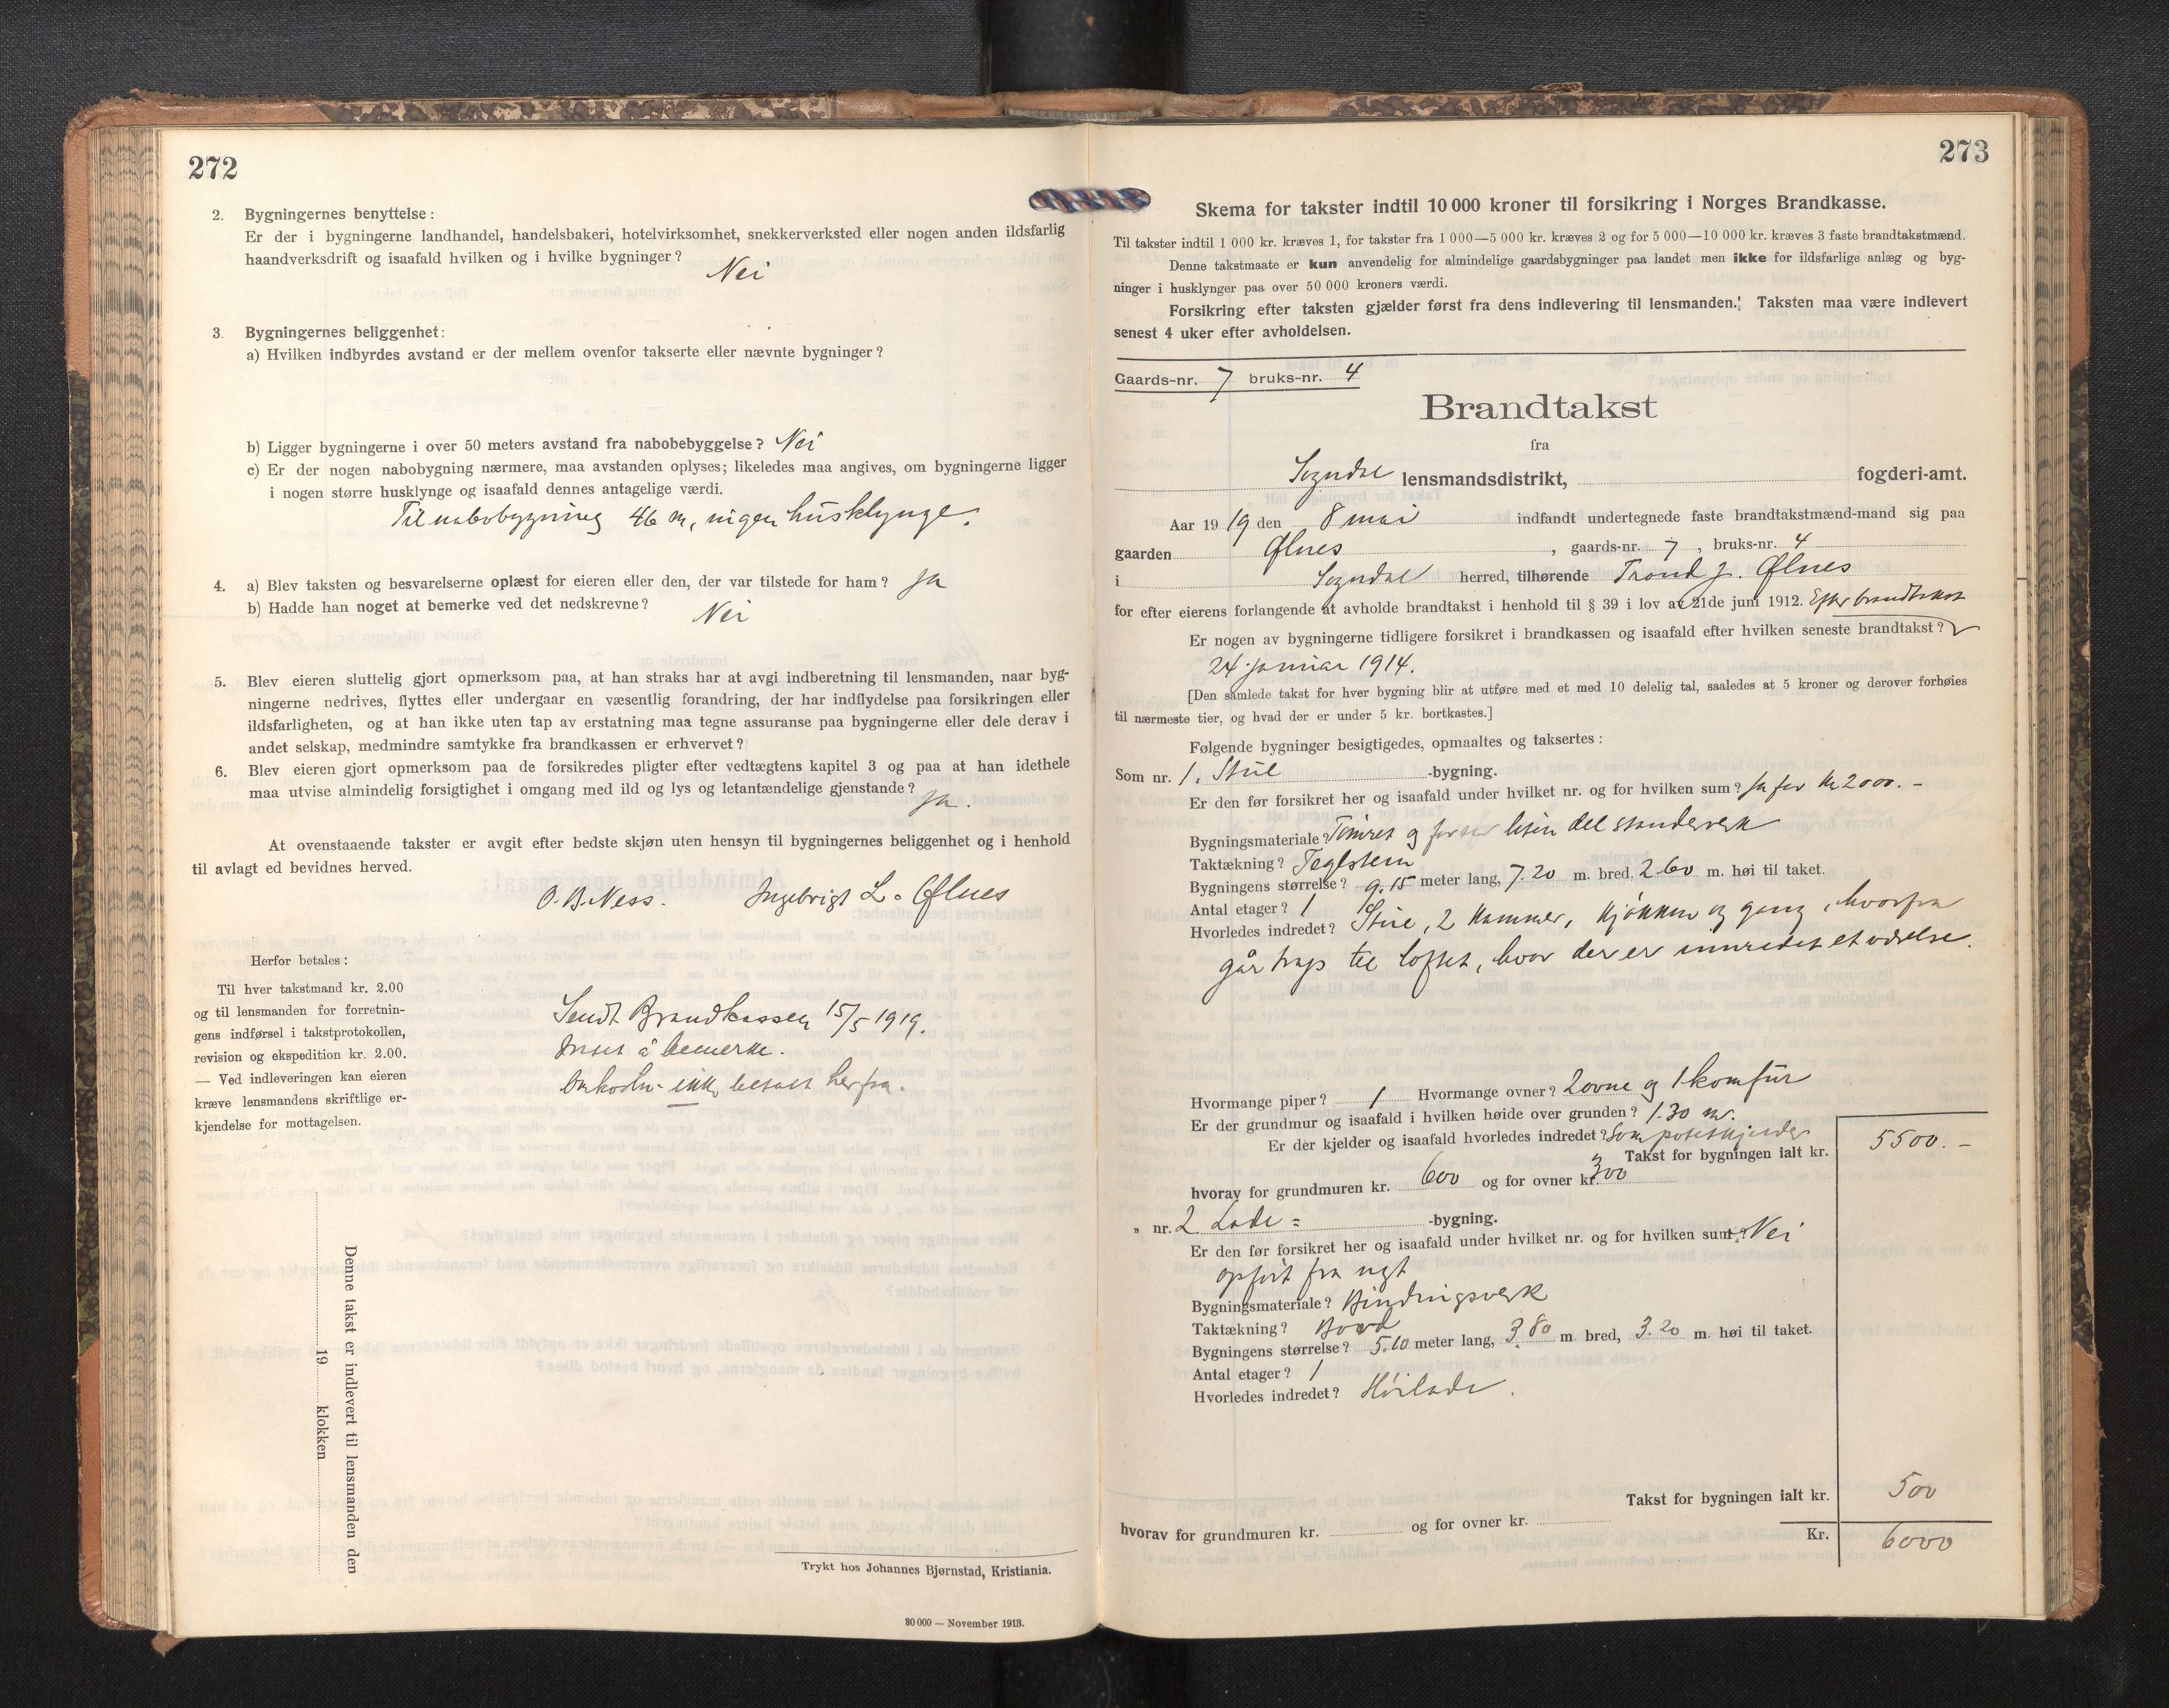 272
2. Bygningernes benyttelse:
Er der i bygningerne landhandel, handelsbakeri, hotelvirksomhet, snekkerverksted eller nogen anden ildsfarlig
haandverksdrift og isaafald hvilken og i hvilke bygninger? Nei
3. Bygningernes beliggenhet:
a) Hvilken indbyrdes avstand er der mellem ovenfor takserte eller nævnte bygninger?
b) Ligger bygningerne i over 50 meters avstand fra nabobebyggelse? Nei
c) Er der nogen nabobygning nærmere, maa avstanden oplyses; likeledes maa angives, om bygningerne ligger
i nogen større husklynge og isaafald dennes antagelige værdi.
Til nabobygning 46 m, ingen husklynge.
4. a) Blev taksten og besvarelserne oplæst for eieren eller den, der var tilstede for ham? Ja
b) Hadde han noget at bemerke ved det nedskrevne? Nei
5. Blev eieren sluttelig gjort opmerksom paa, at han straks har at avgi indberetning til lensmanden, naar byg-
ningerne nedrives, flyttes eller undergaar en væsentlig forandring, der har indflydelse paa forsikringen eller
ildsfarligheten, og at han ikke uten tap av erstatning maa tegne assuranse paa bygningerne eller dele derav i
andet selskap, medmindre samtykke fra brandkassen er erhvervet?
6. Blev eieren gjort opmerksom paa de forsikredes pligter efter vedtægtens kapitel 3 og paa at han idethele
maa utvise almindelig forsigtighet i omgang med ild og lys og letantændelige gjenstande? Ja.
At ovenstaaende takster er avgit efter bedste skjøn uten hensyn til bygningernes beliggenhet og i henhold
til avlagt ed bevidnes herved.
O. B. Ness. Ingebrigt L. Ølnes
Herfor betales:
Til hver takstmand kr. 2.00
og til lensmanden for forretnin-
gens indførsel i takstprotokollen,
revision og ekspedition kr. 2.00.
— Ved indleveringen kan eieren
kræve lensmandens skriftlige er-
kjendelse for mottagelsen.
Sendt Brandkassen 15/5 1919.
Intet å bemerke.
Omkostn. ikke betalt herfra.
Denne takst er indlevert til lensmanden den
19 klokken
Trykt hos Johannes Bjørnstad, Kristiania.
30 000 — November 1913.
273
Skema for takster indtil 10 000 kroner til forsikring i Norges Brandkasse.
Til takster indtil 1 000 kr. kræves 1, for takster fra 1 000—5 000 kr. kræves 2 og for 5 000—10 000 kr. kræves 3 faste brandtakstmænd.
Denne takstmaate er kun anvendelig for almindelige gaardsbygninger paa landet men ikke for ildsfarlige anlæg og byg-
ninger i husklynger paa over 50 000 kroners værdi.
Forsikring efter taksten gjælder først fra dens indlevering til lensmanden. Taksten maa være indlevert
senest 4 uker efter avholdelsen.
Gaards-nr. 7 bruks-nr. 4
Brandtakst
fra
Sogndal lensmandsdistrikt, fogderi-amt.
Aar 1919 den 8 mai indfandt undertegnede faste brandtakstmænd-mand sig paa
gaarden Ølnes, gaards-nr. 7, bruks-nr. 4
i Sogndal herred, tilhørende Trond J. Ølnes
for efter eierens forlangende at avholde brandtakst i henhold til § 39 i lov av 21de juni 1912. Efter brandtakst
Er nogen av bygningerne tidligere forsikret i brandkassen og isaafald efter hvilken seneste brandtakst?
24 januar 1914.
[Den samlede takst for hver bygning blir at utføre med et med 10 delelig tal, saaledes at 5 kroner og derover forhøies
til nærmeste tier, og hvad der er under 5 kr. bortkastes.]
Følgende bygninger besigtigedes, opmaaltes og taksertes:
Som nr. 1. Stue -bygning.
Er den før forsikret her og isaafald under hvilket nr. og for hvilken sum? Ja for kr 2000.-
Bygningsmateriale? Tømret og for en liten del standerverk
Taktækning? Teglsten
Bygningens størrelse? 9.15 meter lang, 7.20 m. bred, 2.60 m. høi til taket.
Antal etager? 1
Hvorledes indredet? Stue, 2 kammer, kjøkken og gang, hvorfra
går trap til loftet, hvor der er innredet et værelse.
Hvormange piper? 1 Hvormange ovner? 2 ovne og 1 komfür
Er der grundmur og isaafald i hvilken høide over grunden? 1.30 m.
Er der kjelder og isaafald hvorledes indredet? Som potetkjelder
Takst for bygningen ialt kr. 5500.-
hvorav for grundmuren kr. 600 og for ovner kr. 300
„ nr. 2 Lade = -bygning.
Er den før forsikret her og isaafald under hvilket nr. og for hvilken sum? Nei
opført fra nyt
Bygningsmateriale? Bindingsverk
Taktækning? Bord
Bygningens størrelse? 5.10 meter lang, 3.80 m. bred, 3.20 m. høi til taket.
Antal etager? 1
Hvorledes indredet? Høilade.
Takst for bygningen ialt kr. 500
hvorav for grundmuren kr. og for ovner kr.
Kr. 6000